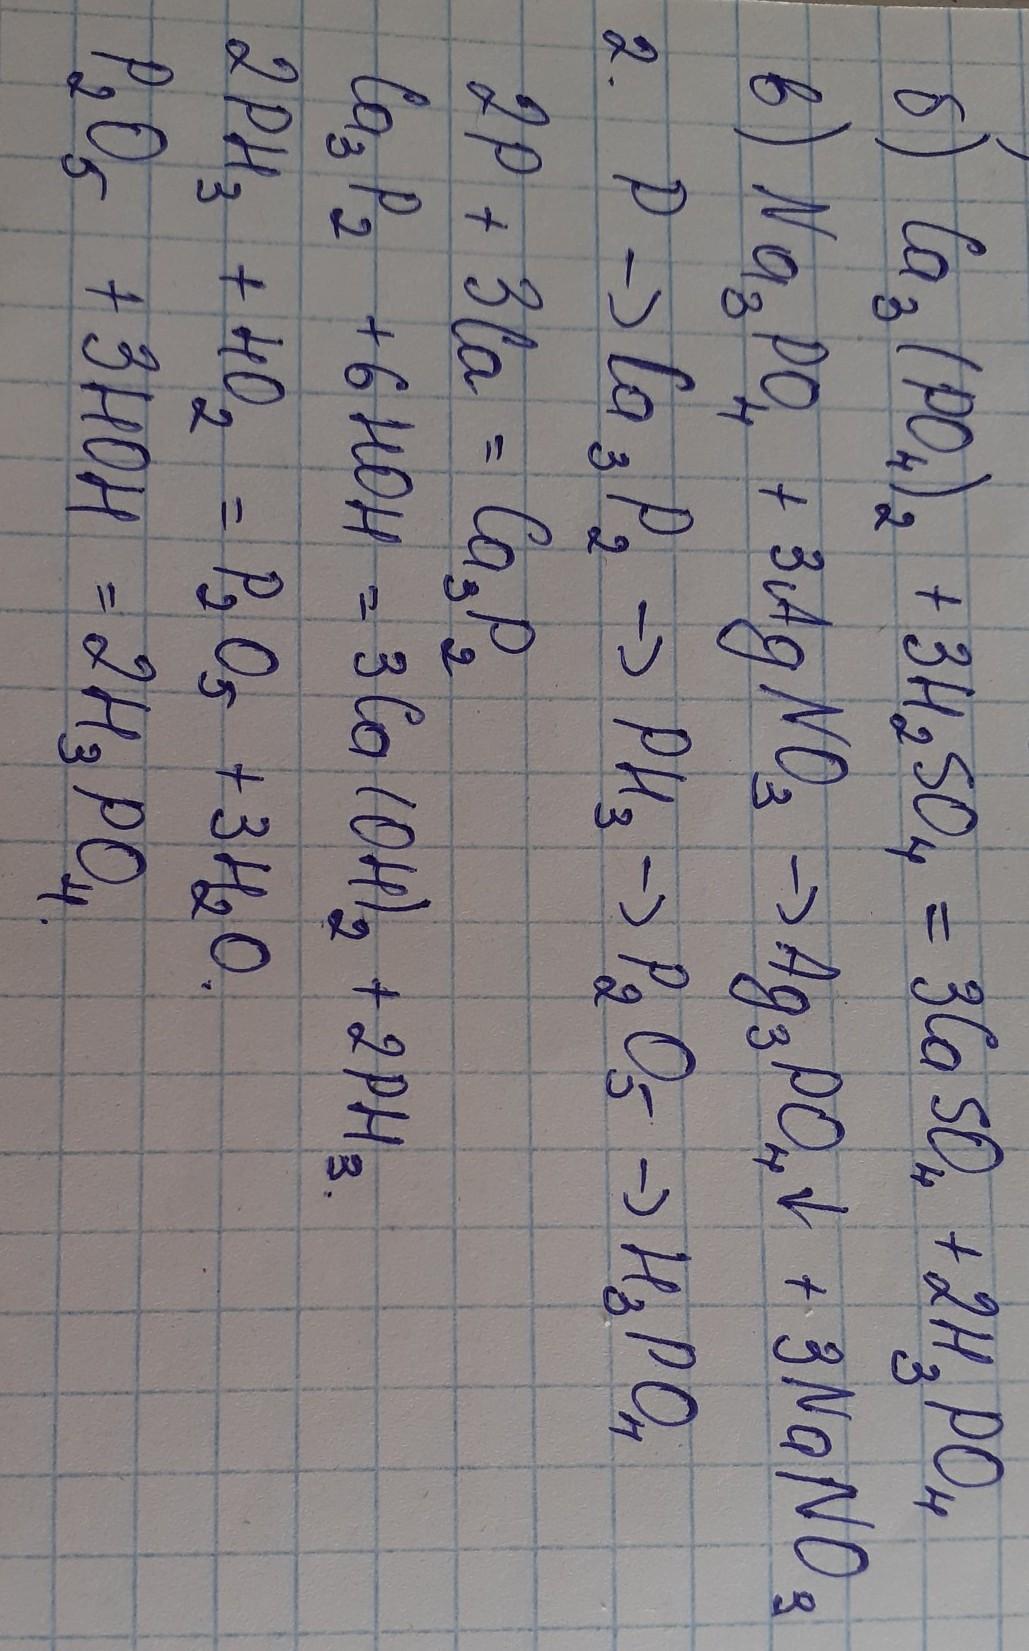 б) Ca₃(PO₄)₂ + 3H₂SO₄ = 3CaSO₄ + 2H₃PO₄
в) Na₃PO₄ + 3AgNO₃ → Ag₃PO₄↓ + 3NaNO₃
2. P → Ca₃P₂ → PH₃ → P₂O₅ → H₃PO₄
2P + 3Ca = Ca₃P₂
Ca₃P₂ + 6HOH = 3Ca(OH)₂ + 2PH₃.
2PH₃ + 4O₂ = P₂O₅ + 3H₂O.
P₂O₅ + 3HOH = 2H₃PO₄.